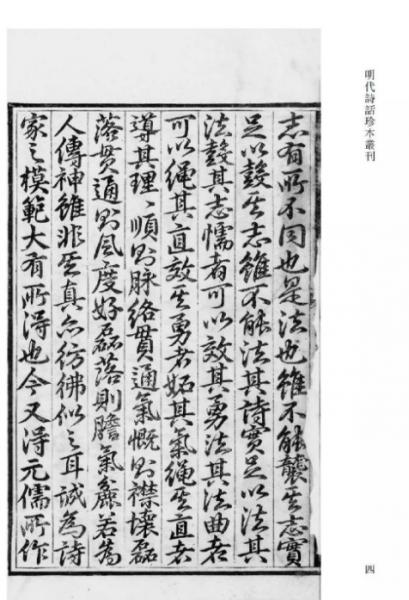 明代詩話珍本叢刊
志有所不同也是法也雖不能襲其志實
足以鼓其志雖不能法其詩實足以法其
法鼓其志懦者可以效其勇法其法曲者
可以繩其直效其勇者妬其氣繩其直者
導其理〻順則脉絡貫通氣慨則襟壞磊
落貫通則風度好磊落則膽氣麄若為
人傳神雖非其真亦彷彿似之耳誠為詩
家之模範大有所得也今又得元儒所作
四